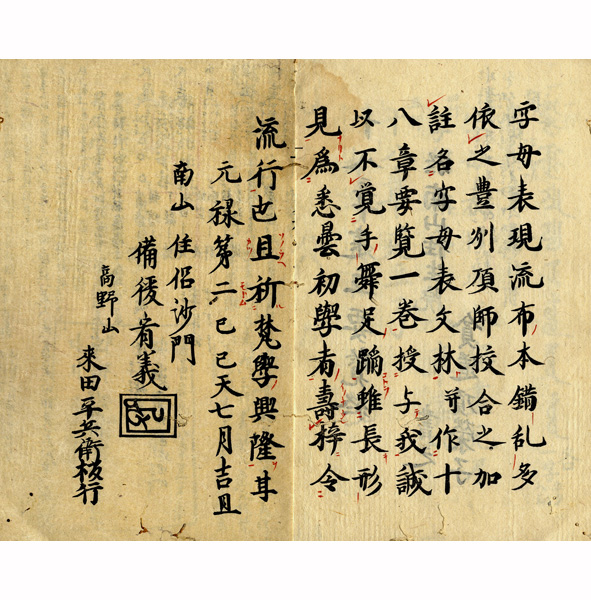 字母表現流布本錯乱多
依之豊州頂師挍合之加
註名字母表文林并作十
八章要覧一巻授与我誠
以不覚手舞足蹈雖長形
見為悉曇初學者壽梓令
流行也且祈梵學興隆耳
元禄第二己巳天七月吉旦
南山住侶沙門
備後宥義
高野山
來田平兵衛板行